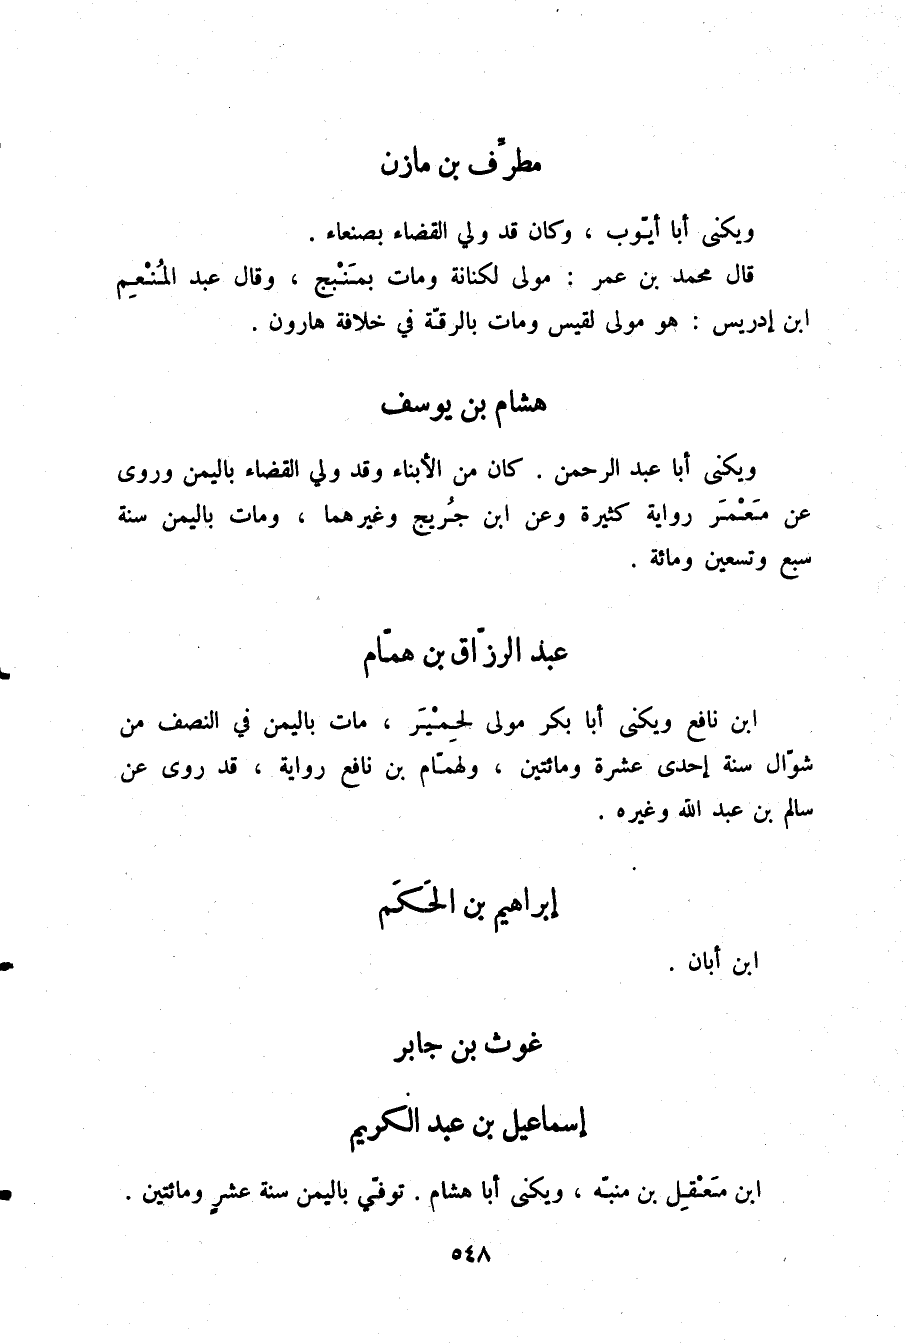 مطرِّف بن مازن
ويكنى أبا أيّوب ، وكان قد ولي القضاء بصنعاء .
قال محمد بن عمر : مولى لكنانة ومات بمَنْبج ، وقال عبد المُنْعِم
ابن إدريس : هو مولى لقيس ومات بالرقّة في خلافة هارون .
هشام بن يوسف
ويكنى أبا عبد الرحمن . كان من الأبناء وقد ولي القضاء باليمن وروى
عن مَعْمَر رواية كثيرة وعن ابن جُريج وغيرهما ، ومات باليمن سنة
سبع وتسعين ومائة .
عبد الرزّاق بن همّام
ابن نافع ويكنى أبا بكر مولى لحِمْيَر ، مات باليمن في النصف من
شوّال سنة إحدى عشرة ومائتين ، ولهمّام بن نافع رواية ، قد روى عن
سالم بن عبد الله وغيره .
إبراهيم بن الحَكَم
ابن أبان .
غوث بن جابر
إسماعيل بن عبد الكريم
ابن مَعْقِل بن منبّه ، ويكنى أبا هشام . توفّي باليمن سنة عشرٍ ومائتين .
٥٤٨